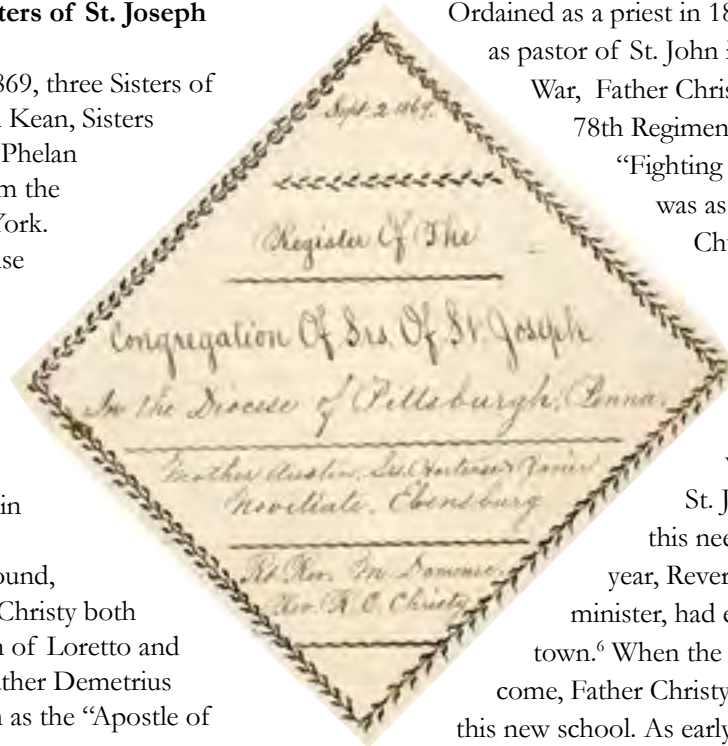 ters of St. Joseph
869, three Sisters of
Kean, Sisters
Phelan
m the
York.
se
in
ound,
Christy both
n of Loretto and
ther Demetrius
n as the “Apostle of
Sept. 2 1869.
Register Of The
Congregation Of Srs. Of St. Joseph
In the Diocese of Pittsburgh, Penna.
Mother Austin, Srs. Hortense & Xavier
Novitiate, Ebensburg
Rt. Rev. M. Domenec.
Rev. R. C. Christy
Ordained as a priest in 18
as pastor of St. John
War, Father Chris
78th Regimen
“Fighting
was as
Ch
St. J
this nee
year, Rever
minister, had e
town.⁶ When the
come, Father Christy
this new school. As early